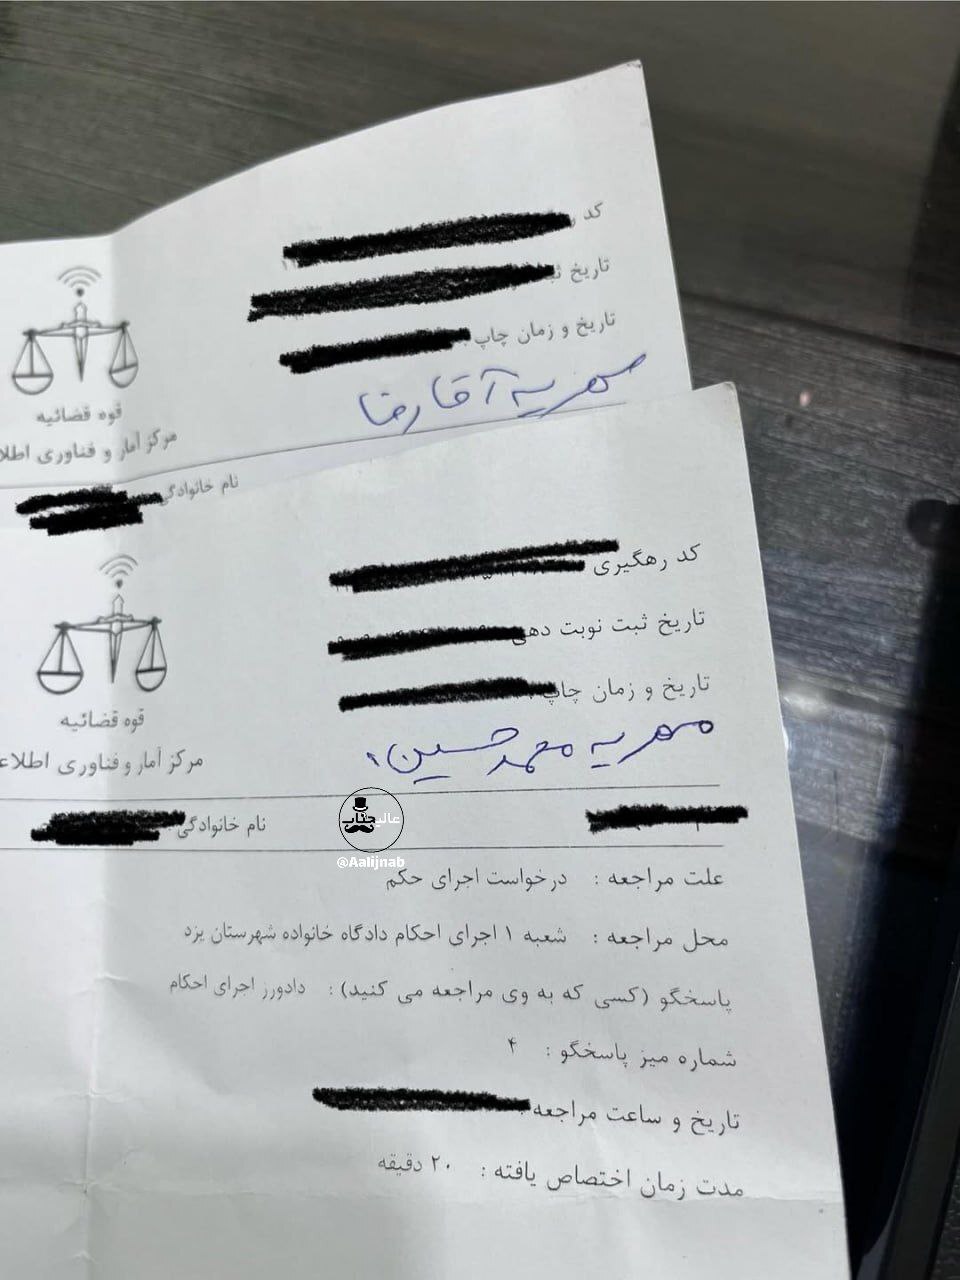 کد ر
تاریخ ث
تاریخ و زمان چاپ
مهریه آقا رضا
قوه قضائیه
مرکز آمار و فناوری اطلا
نام خانوادگی
کد رهگیری
تاریخ ثبت نوبت دهی
تاریخ و زمان چاپ
مهریه محمدحسین
قوه قضائیه
مرکز آمار و فناوری اطلاع
نام خانوادگی
عالیجناب
@Aalijnab
علت مراجعه : درخواست اجرای حکم
محل مراجعه : شعبه ۱ اجرای احکام دادگاه خانواده شهرستان یزد
پاسخگو (کسی که به وی مراجعه می کنید) : دادورز اجرای احکام
شماره میز پاسخگو : ۴
تاریخ و ساعت مراجعه
مدت زمان اختصاص یافته : ۲۰ دقیقه